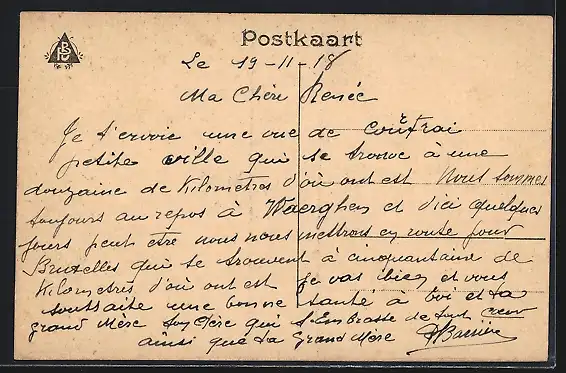 Postkaart
Le 19-11-18
Ma Chère Renée
Je t'envoie une vue de Courtrai
petite ville qui se trouve à une
douzaine de Kilometres d'où ont est Nous sommes
toujours au repos à Waerghem et d'ici quelques
jours peut être nous nous mettrons en route pour
Bruxelles qui se trouvent à cinquantaine de
Kilometrès d'où ont est je vas bien et vous
souhaite une bonne santé à toi et ta
grand Mère ton Père qui t'Embrasse de tout cœur
ainsi que ta Grand Mère